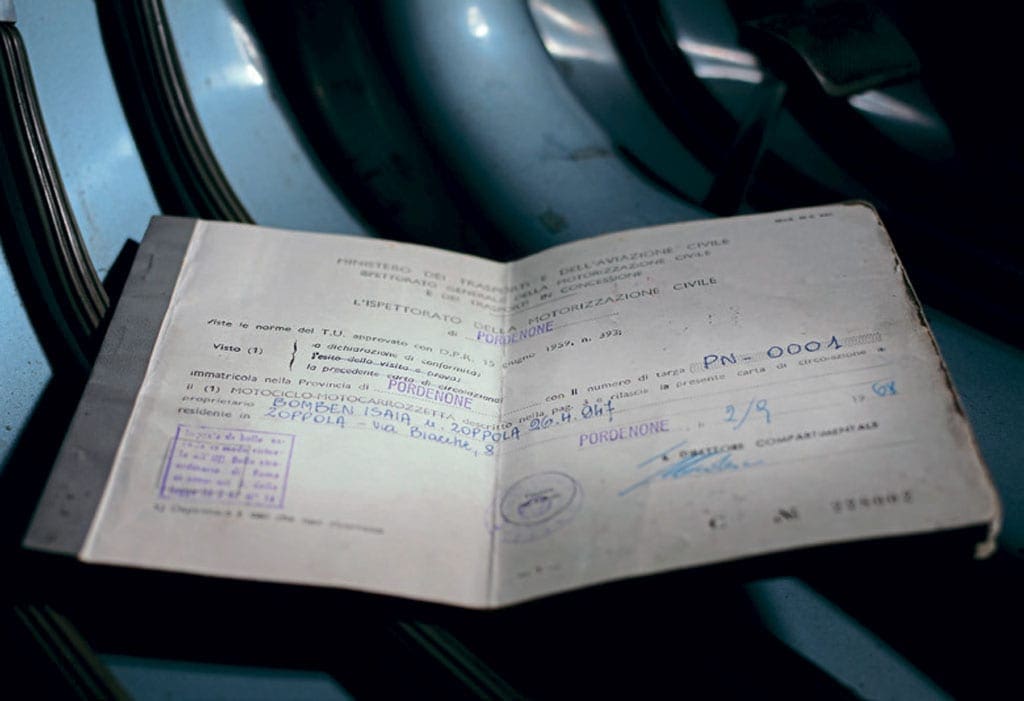 MINISTERO DEI TRASPORTI E DELL'AVIAZIONE CIVILE
ISPETTORATO GENERALE DELLA MOTORIZZAZIONE CIVILE
E DEI TRASPORTI IN CONCESSIONE
L'ISPETTORATO DELLA MOTORIZZAZIONE CIVILE
di PORDENONE
Viste le norme del T.U. approvato con D.P.R. 15 giugno 1959, n. 393;
Visto (1)
la dichiarazione di conformità;
l'esito della visita e prova;
la precedente carta di circolazione;
immatricola nella Provincia di PORDENONE con il numero di targa PN-0001
il (1) MOTOCICLO-MOTOCARROZZETTA descritto nella pag. 3 e rilascia la presente carta di circolazione a
proprietario BOMBEN ISAIA n. ZOPPOLA 26.4.947
residente in ZOPPOLA - Via Biacche, 8
PORDENONE, li 2/9 1968
IL DIRETTORE COMPARTIMENTALE
C №